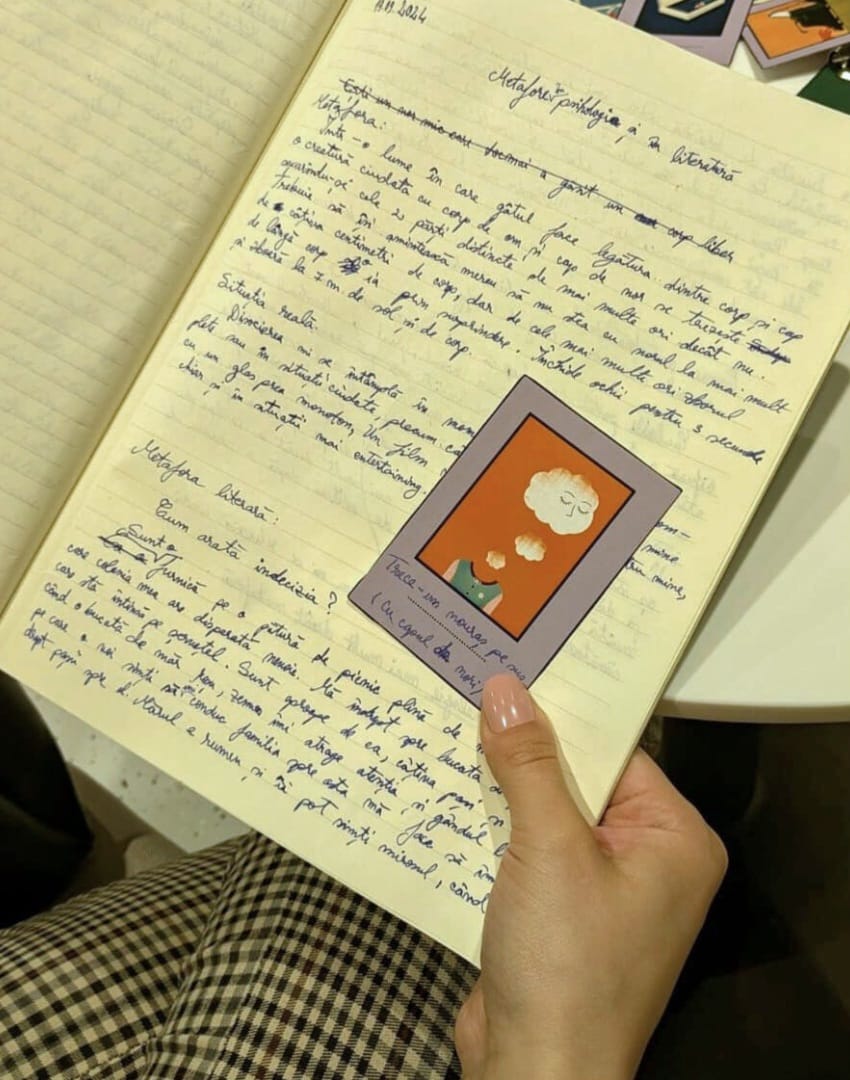 11.09.2024
Metafore în psihologie și în literatură
Ești un nor mic care tocmai a găsit un corp liber
Metafora:
Într-o lume în care gâtul face legătura dintre corp și cap
o creatură ciudată cu corp de om și cap de nor se trezește
cele 2 părți distincte de mai multe ori decât nu.
Trebuie să își amintească mereu să nu stea cu norul la mai mult
de câțiva centimetri de corp, dar de cele mai multe ori zborul
de lângă corp îl ia prin surprindere. Închide ochii pentru 3 secunde
și zboară la 7 m de sol și de corp.
Situația reală:
Disocierea mi se întâmplă în mom
plete sau în situații ciudate, precum ca
cu un glas prea monoton. Un film
chiar și în situații mai entertaining.
om-
mine
tru mine,
Metafora literară:
Cum arată indecizia?
Sunt o furnică pe o pătură de picnic plină de
care colonia mea are disperată nevoie. Mă îndrept spre bucata d
care stă întinsă pe șervețel. Sunt aproape de ea, câțiva pași,
când o bucată de măr zema îmi atrage atenția și gândul
pe care o voi simți să-mi conduc familia spre asta mă face să îm
drept pașii spre el. Mărul e rumen și îi pot simți mirosul, când
Trece-un nouraș pe sus
(Cu capul din nori)